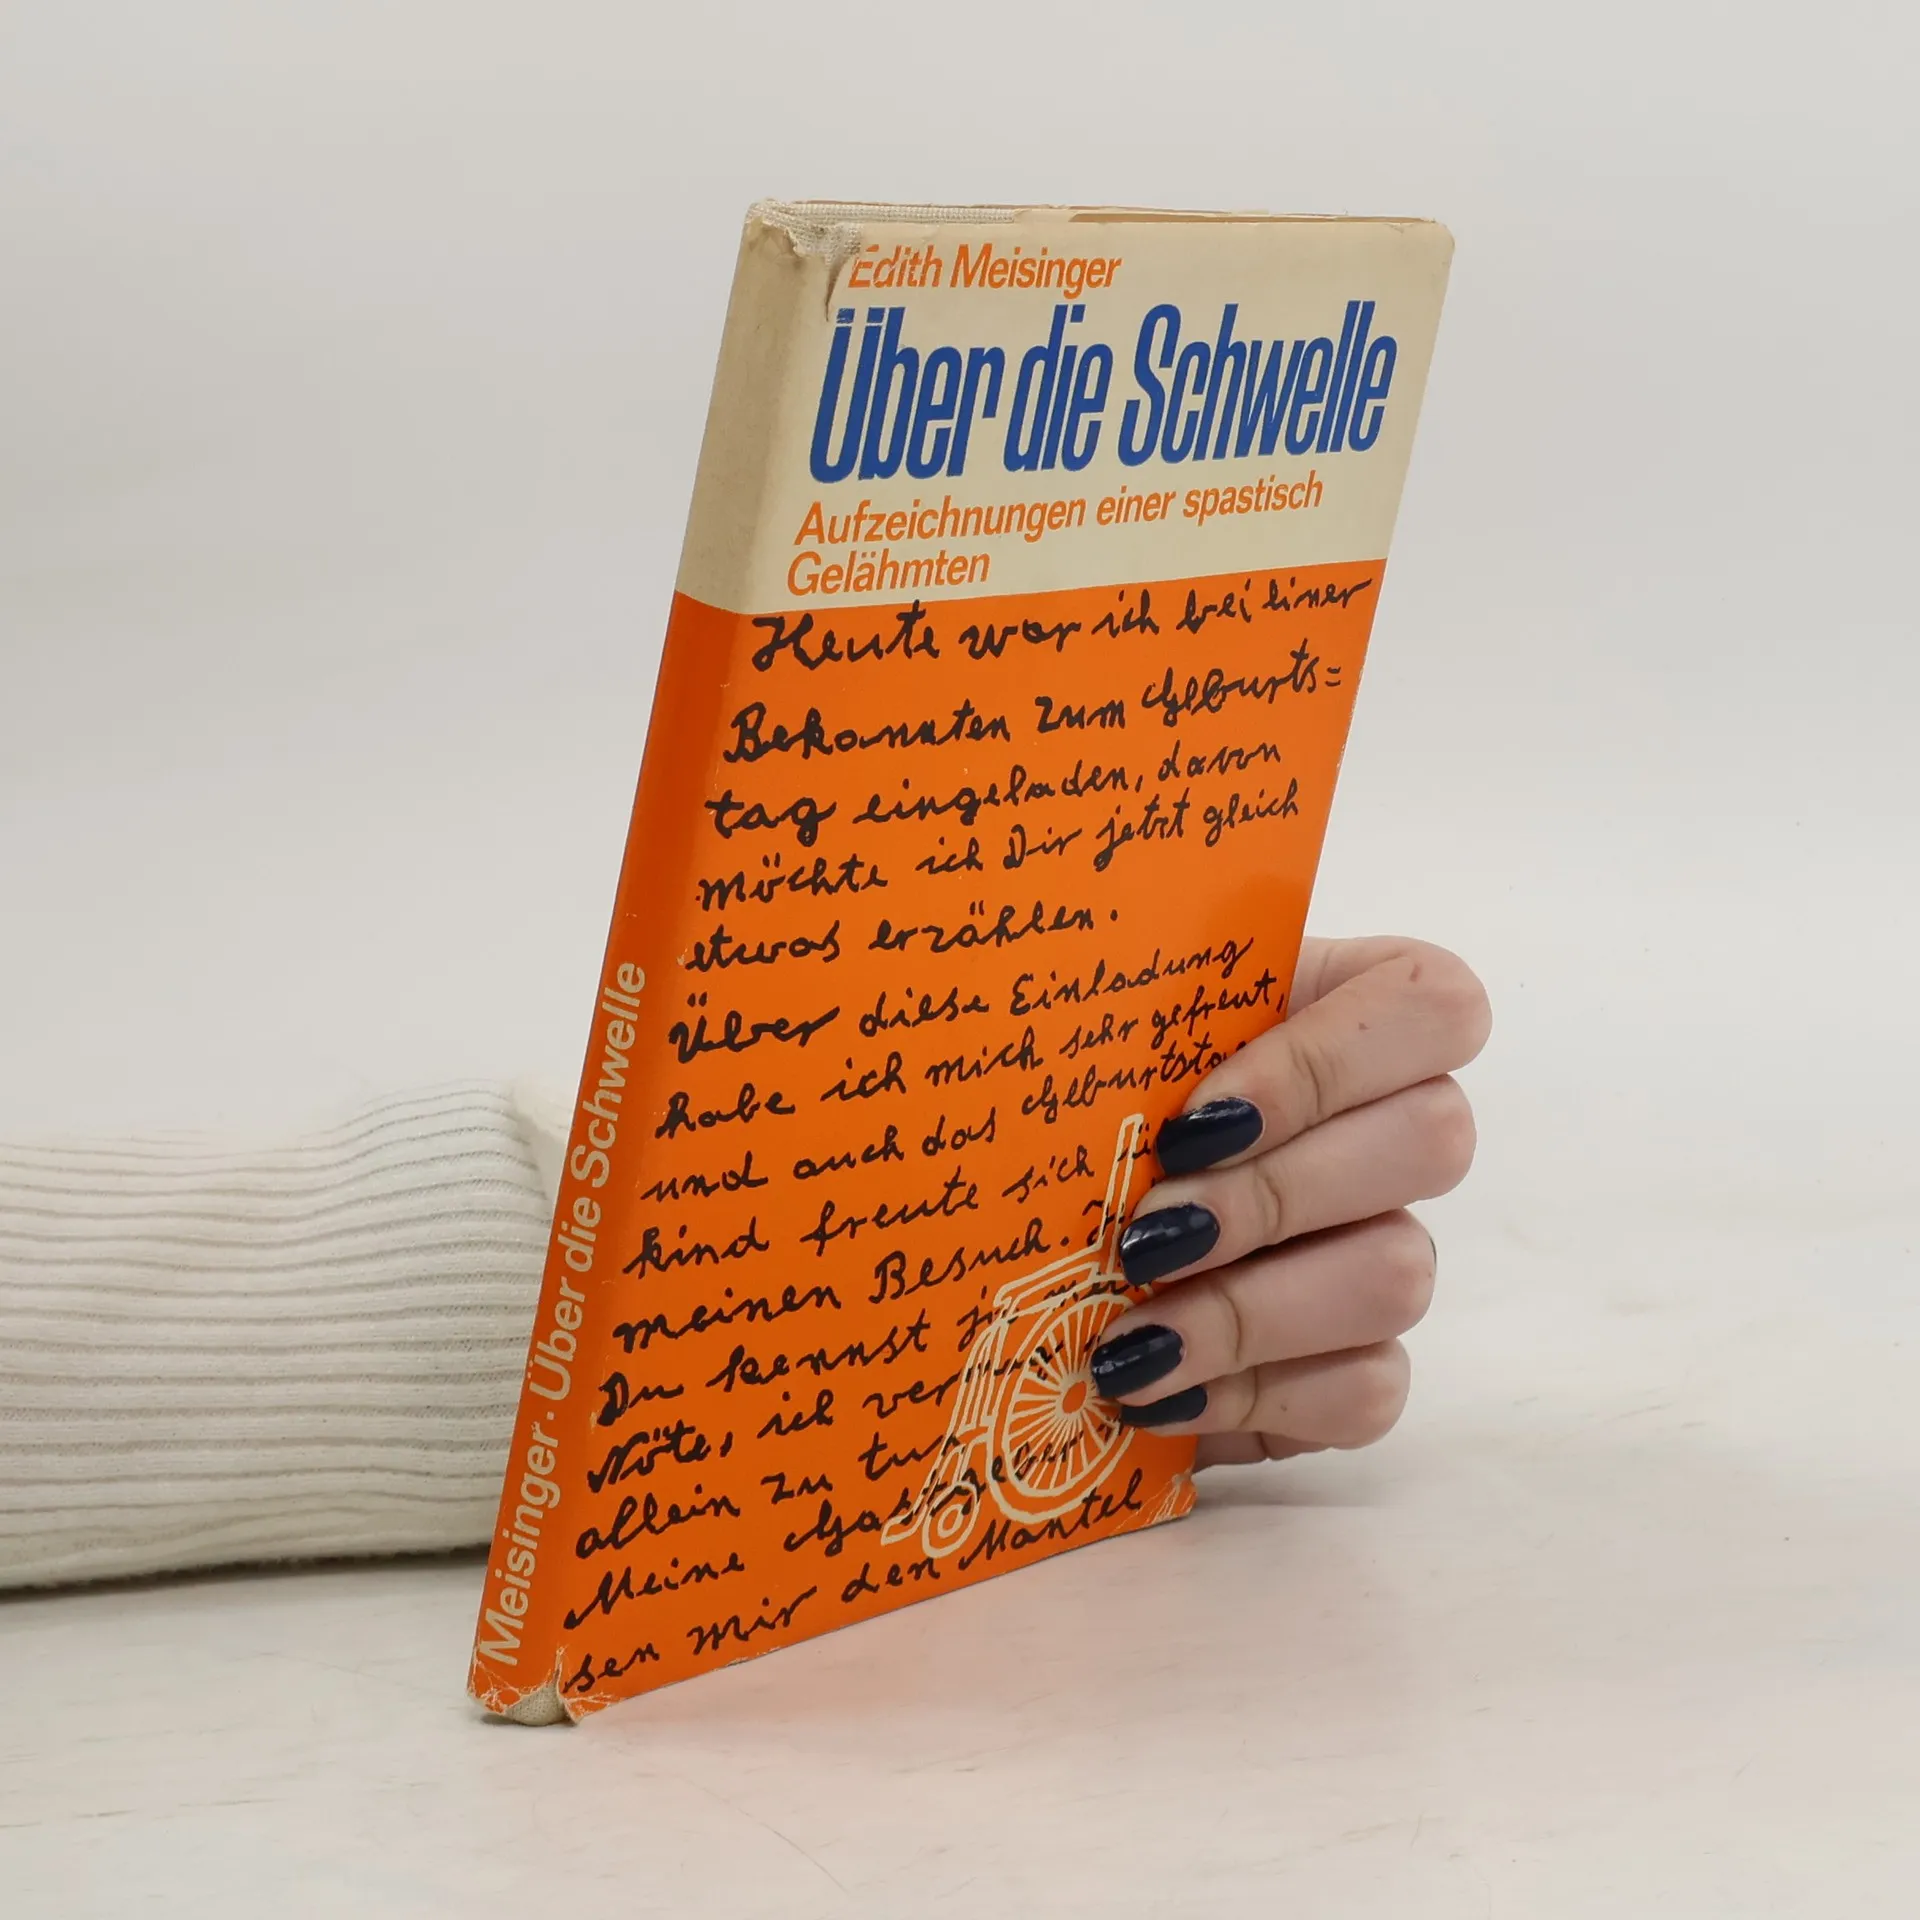 Edith Meisinger
Über die Schwelle
Aufzeichnungen einer spastisch
Gelähmten
Heute war ich bei einer
Bekannten zum Geburts=
tag eingeladen, davon
möchte ich Dir jetzt gleich
etwas erzählen.
Über diese Einladung
habe ich mich sehr gefreut,
und auch das Geburtsta
kind freute sich
meinen Besuch.
Du kennst ja
Nöte, ich
allein zu tun
Meine Gastgeber
sen mir den Mantel
Meisinger · Über die Schwelle